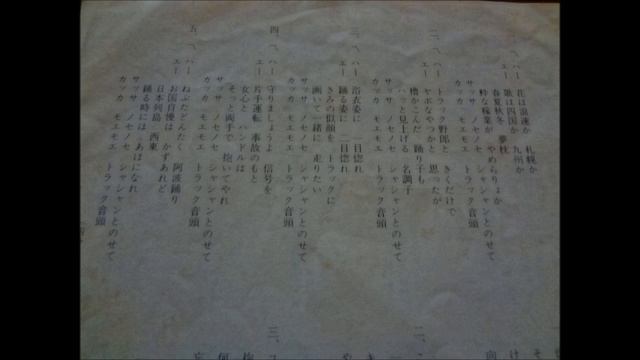 一、ハー
エー
花は浪速か 札幌か
歌は四国か 九州か
春夏秋冬 夢枕
粋な稼業が やめらりょか
サッサ ノセノセ シャンシャンとのせて
カッカ モエモエ トラック音頭
二、ハー
エー
トラック野郎と きくだけで
ヤボなやつかと 思ったが
櫓かこんだ 踊り子も
ハッと見上げる 名調子
サッサ ノセノセ シャンシャンとのせて
カッカ モエモエ トラック音頭
三、ハー
エー
浴衣姿に 一目惚れ
踊る姿に 二目惚れ
きみの似顔を トラックに
画いて一緒に 走りたい
サッサ ノセノセ シャンシャンとのせて
カッカ モエモエ トラック音頭
四、ハー
エー
守りましょうよ 信号を
片手運転 事故のもと
女心と ハンドルは
そっと両手で 抱いてやれ
サッサ ノセノセ シャンシャンとのせて
カッカ モエモエ トラック音頭
五、ハー
エー
ねぶたどんたく 阿波踊り
お国自慢は かずあれど
日本列島 西東
踊る時には あほになれ
サッサ ノセノセ シャンシャンとのせて
カッカ モエモエ トラック音頭
そ
け
向
二、
き
や
三、
抱
何
忘